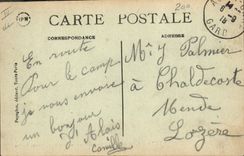 CARTE POSTALE
CORRESPONDANCE
ADRESSE
En route
Pour le camp
je vous envoie
un bonjour
d'Alais
Camille
Mr J Palmier
à Chaldecoste
Mende
Lozère
GARD